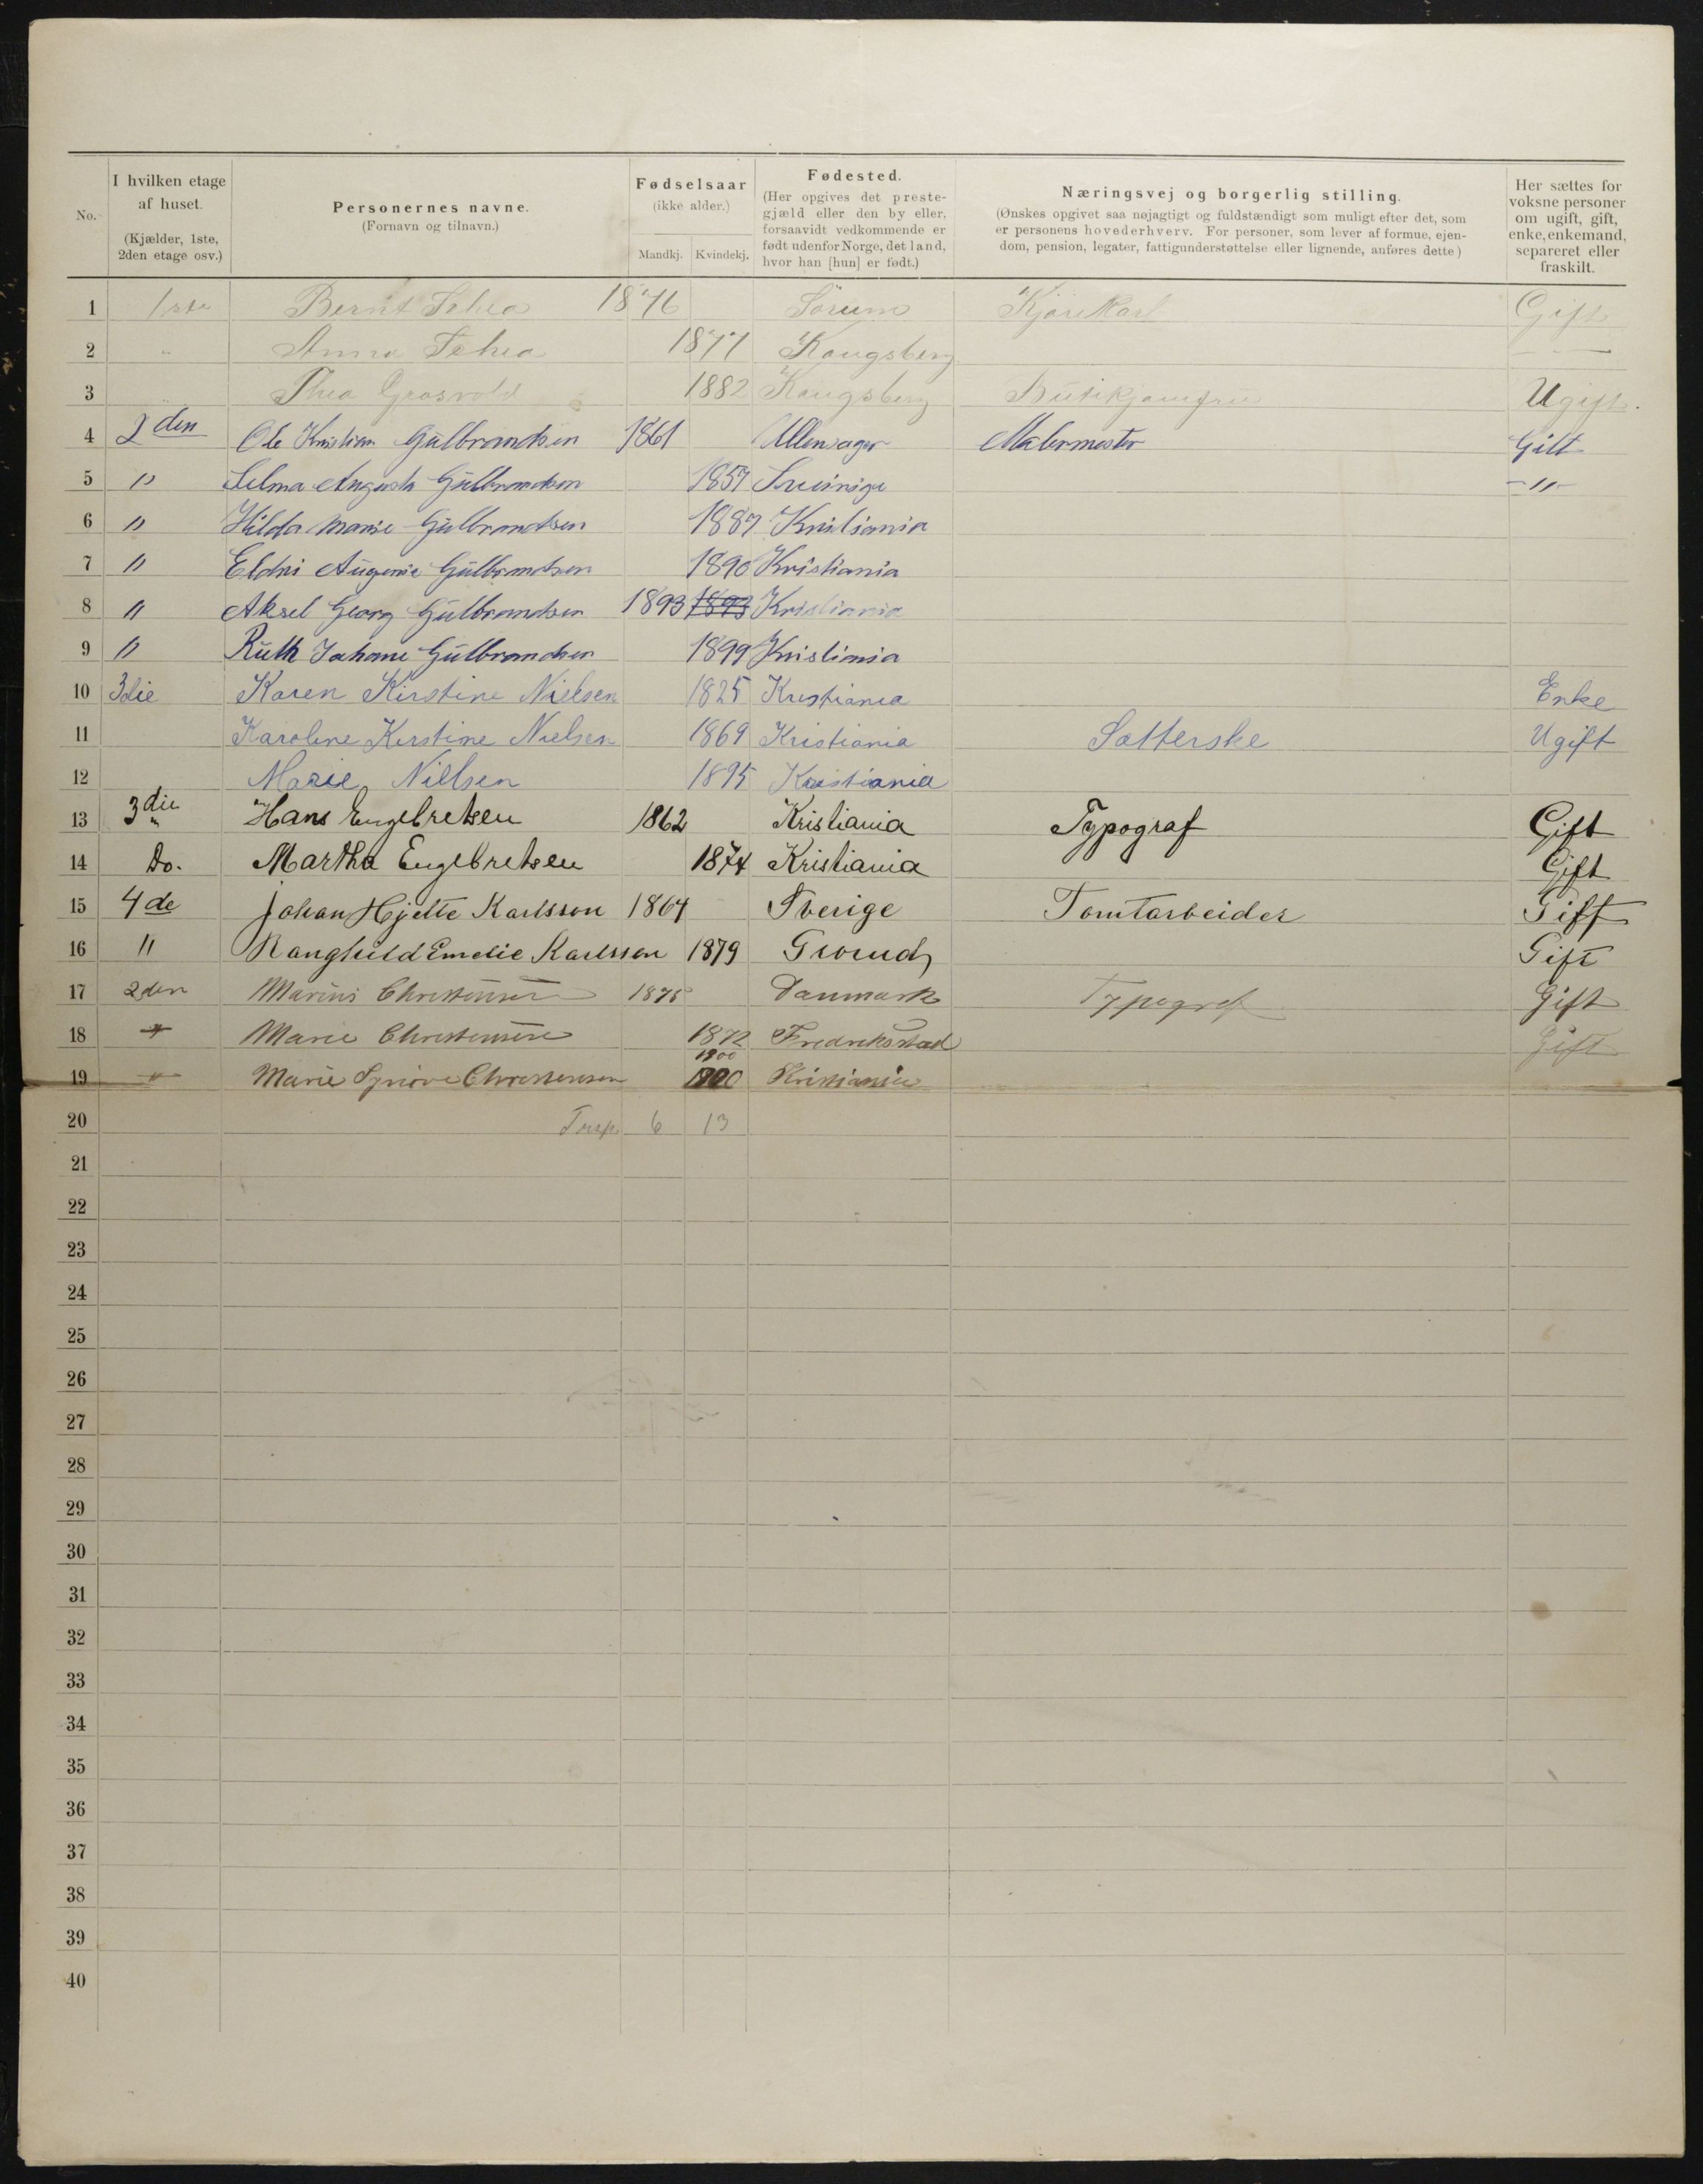 No. | I hvilken etage af huset. (Kjælder, 1ste, 2den etage osv.) | Personernes navne. (Fornavn og tilnavn.) | Fødselsaar (ikke alder.) Mandkj. Kvindekj. | Fødested. (Her opgives det prestegjæld eller den by eller, forsaavidt vedkommende er født udenfor Norge, det land, hvor han [hun] er født.) | Næringsvej og borgerlig stilling. (Ønskes opgivet saa nøjagtigt og fuldstændigt som muligt efter det, som er personens hovederhverv. For personer, som lever af formue, ejendom, pension, legater, fattigunderstøttelse eller lignende, anføres dette) | Her sættes for voksne personer om ugift, gift, enke, enkemand, separeret eller fraskilt.
1 1ste Bernt 1876 Sørum Kjørekarl Gift
2 " Anna 1877 Kongsberg - " -
3 Thea 1882 Kongsberg Butikjomfru Ugift.
4 2den Ole Kristian Gulbrandsen 1861 Ullensager Malermester Gift
5 " Selma Augusta Gulbrandsen 1857 -"-
6 " Hilda Marie Gulbrandsen 1887 Kristiania
7 " Eldri Augenie Gulbrandsen 1890 Kristiania
8 " Aksel Georg Gulbrandsen 1893 1893 Kristiania
9 " Ruth Johane Gulbrandsen 1899 Kristiania
10 3die Karen Kirstine Nielsen 1825 Kristiania Enke
11 Karoline Kirstine Nielsen 1869 Kristiania Satterske Ugift
12 Marie Nillsen 1895 Kristiania
13 3die " Hans Engebretsen 1862 Kristiania Typograf Gift
14 Do. Martha Engebretsen 1874 Kristiania Gift
15 4de Johan Hjelte Karlsson 1864 Sverige Tomtarbeider Gift
16 " Ranghild Emelie Karlsson 1879 Grorud Gift
17 2den Marius Christensen 1875 Danmark Typograf Gift
18 " Marie Christensen 1872 Fredrikstad Gift
1900
19 " Marie Synøve Christensen 1900 Kristiania
20 6 13
21
22
23
24
25
26
27
28
29
30
31
32
33
34
35
36
37
38
39
40